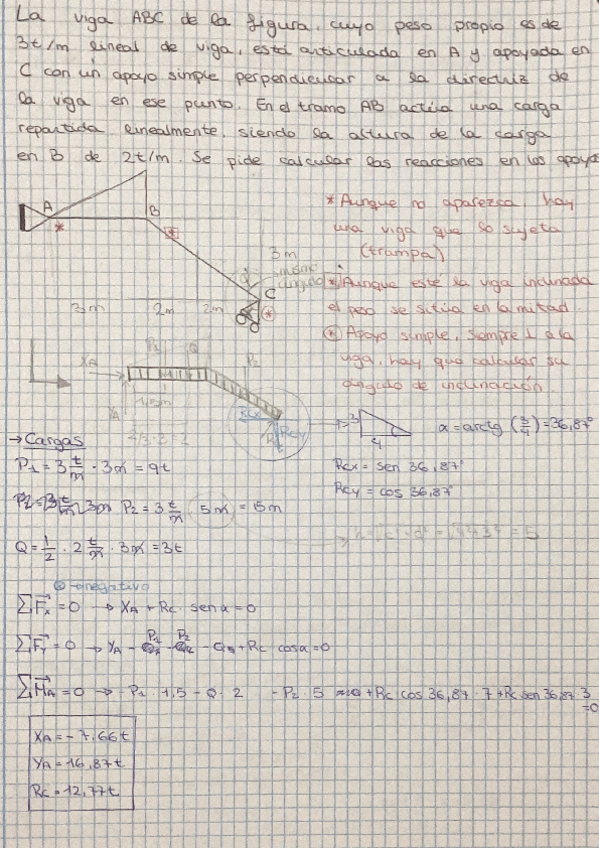 La viga ABC de la figura, cuyo peso propio es de
3t/m lineal de viga, está articulada en A y apoyada en
C con un apoyo simple perpendicular a la directriz de
la viga en ese punto. En el tramo AB actúa una carga
repartida linealmente, siendo la altura de la carga
en B de 2t/m. Se pide calcular las reacciones en los apoyos
* Aunque no aparezca, hay
una viga que lo sujeta
(trampa)
A
*
B
*
3 m
mismo
ángulo
C
*
3 m
2m
2m
* Aunque esté la viga inclinada
el peso se sitúa en la mitad.
* Apoyo simple, siempre ⊥ a la
viga, hay que calcular su
ángulo de inclinación.
XA
P1
Q
P2
YA
1,5m
2/3·3=2
Rcx
Rcy
3
4
α = arctg (3/4) = 36,87°
→ Cargas
P1 = 3 t/m · 3m = 9t
Rcx = sen 36,87°
Rcy = cos 36,87°
P2 = 3 t/m 5m = 15m
Q = 1/2 · 2 t/m · 3m = 3t
= 5
→ negativo
ΣFx = 0 → XA + Rc · senα = 0
ΣFy = 0 → YA - P1 - P2 - Q + Rc cosα = 0
ΣMA = 0 → - P1 · 1,5 - Q · 2 - P2 · 5 + Rc cos 36,87 · 7 + Rc sen 36,87 · 3 = 0
XA = - 7,66t
YA = 16,87t
Rc = 12,77t